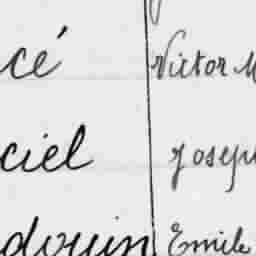 cé Victor M
ciel Joseph
douin Emile